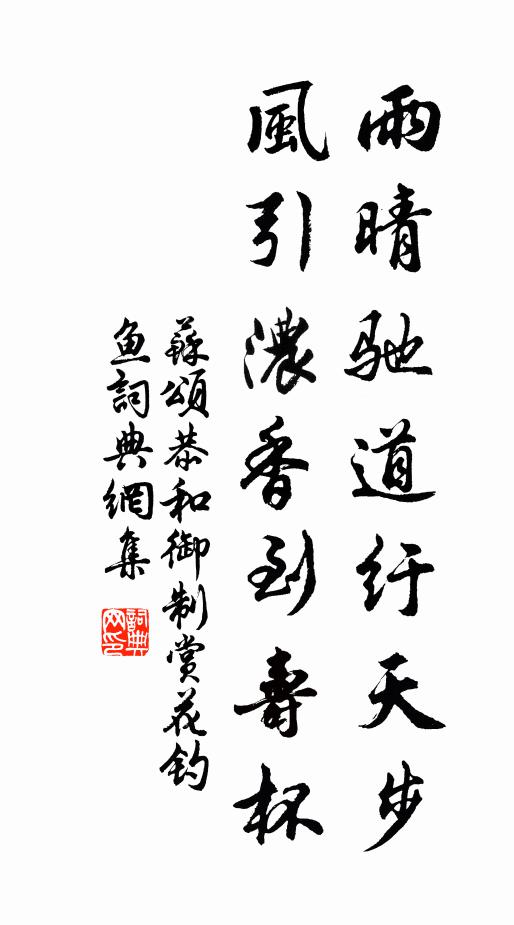 雨晴馳道紆天步
風引濃香到壽杯
蘇頌恭和御制賞花釣
魚詞典網集
詞典
网印